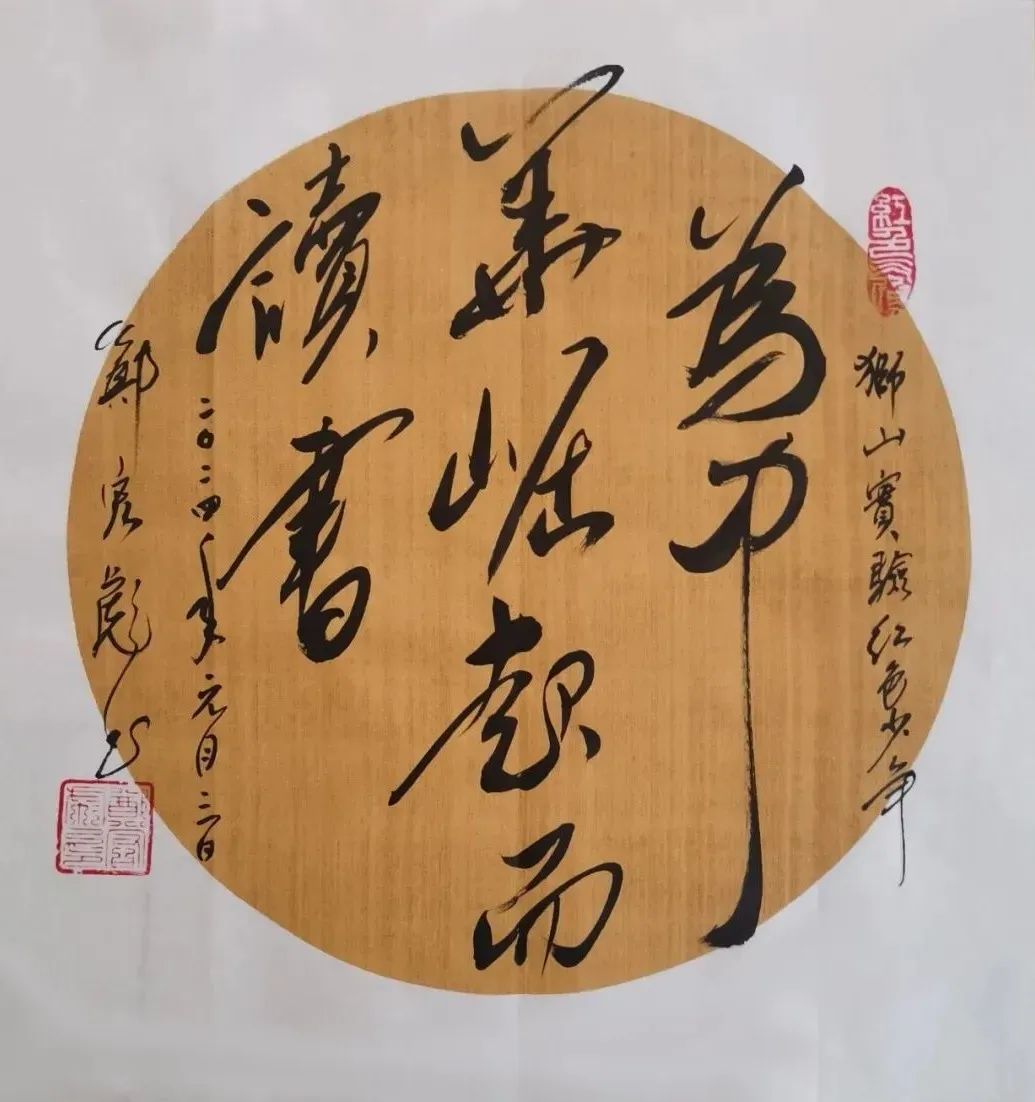 獅山實驗红色少年
為中
華崛起而
讀書
二〇二四年元月二日
鄭宏彪书